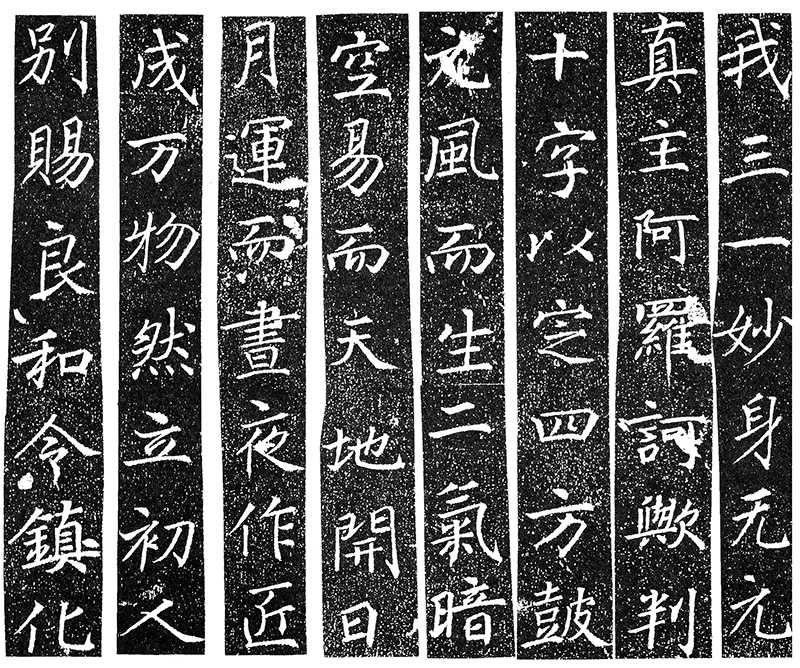 我三一妙身无元
真主阿羅訶歟判
十字以定四方鼓
元風而生二氣暗
空易而天地開日
月運而晝夜作匠
成万物然立初人
別賜良和令鎮化